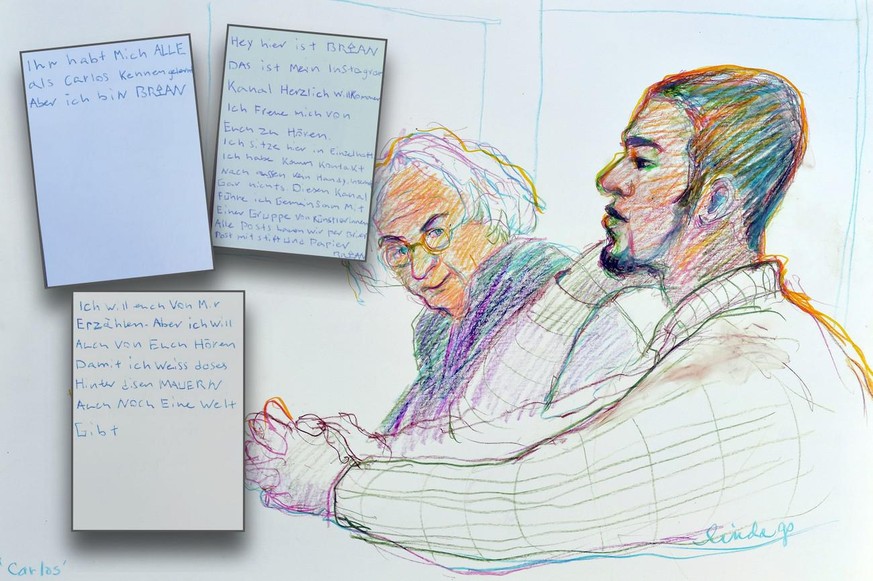 Ihr habt Mich ALLE
als Carlos Kennengelernt
Aber ich biN BRIAN
Hey hier ist BRIAN
DAS ist Mein Instagram
Kanal Herzlich Willkommen
Ich Freue mich von
Euch zu Hören.
Ich sitze hier in Einzelhaft
Ich habe Kaum Kontakt
Nach außen Kein Handy,
Gar nichts. Diesen Kanal
Führe ich Gemeinsam Mit
Einer Gruppe von Künstlerinnen
Alle Posts hauen wir per Brief
Post mit stift und Papier
BRIAN
Ich will euch Von Mir
Erzählen. Aber ich will
Auch von Euch Hören
Damit ich Weiss dases
Hinter disen MAUERN
Auch NOCH Eine Welt
Gibt
linda gp
'Carlos'